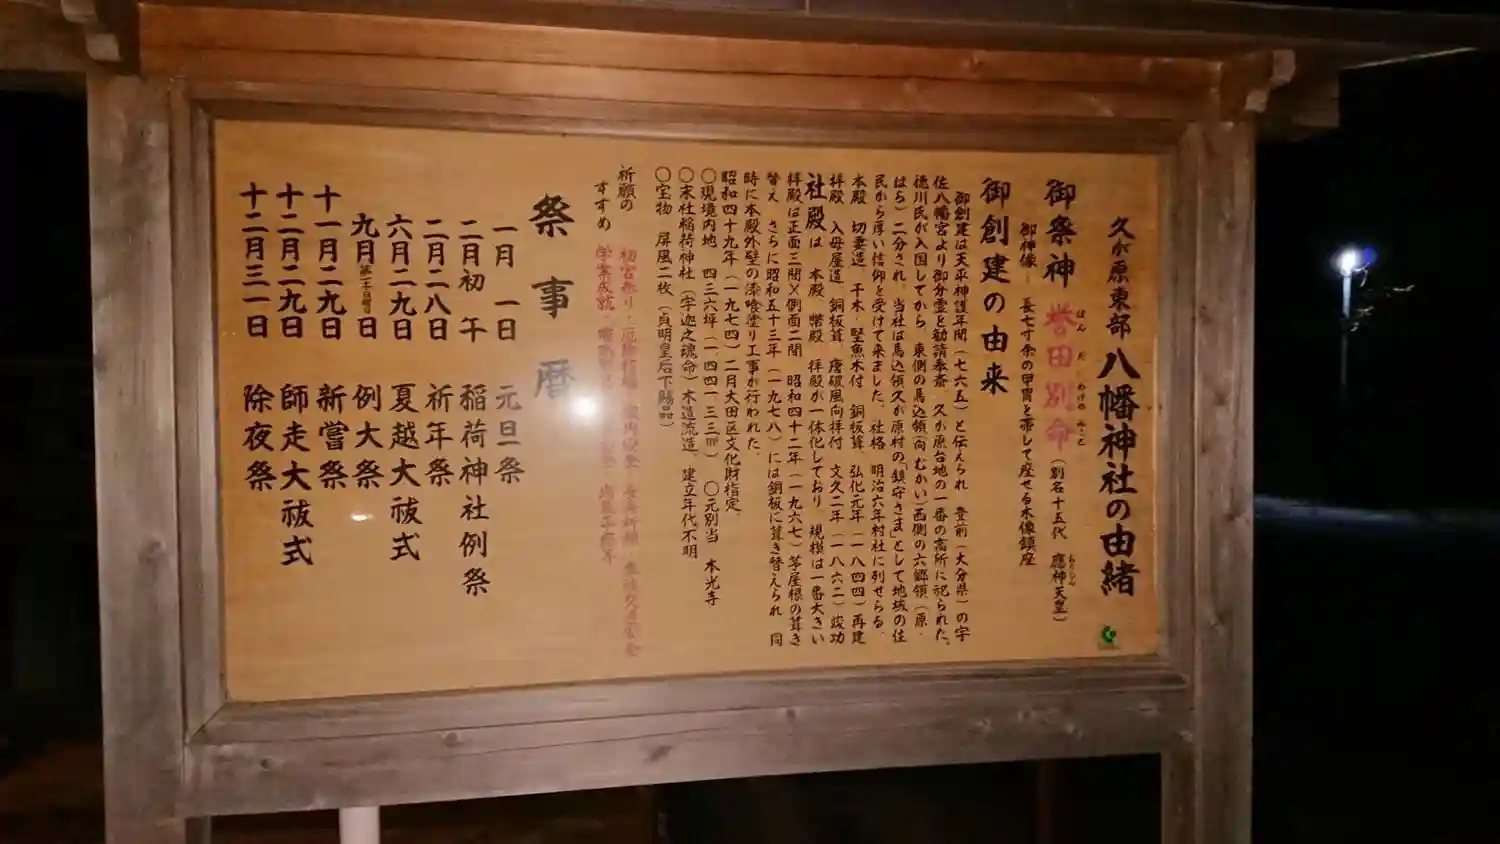 久が原東部 八幡神社の由緒
御祭神 誉田別命(別名十五代 應神天皇)
ほん だ わけの みこと
おうじん
御神像 - 長七寸余の甲冑を帯して座せる木像鎮座
御創建の由来
御創建は天平神護年間(七六五)と伝えられ 豊前(大分県)の宇
佐八幡宮より御分霊を勧請奉斎、久が原台地の一番の高所に祀られた、
徳川氏が入国してから、東側の馬込領(向(むかい)西側の六郷領(原・
はら)二分され、当社は馬込領久が原村の「鎮守さま」として地域の住
民から厚い信仰を受けて来ました、社格 明治六年村社に列せらる、
本殿 切妻造 千木・堅魚木付 銅板葺、弘化元年(一八四四)再建
拝殿 入母屋造 銅板葺 唐破風向拝付 文久二年(一八六二)竣功
社殿は 本殿 幣殿 拝殿が一体化しており 規模は一番大きい
拝殿は正面三間×側面二間 昭和四十二年(一九六七)茅屋根の葺き
替え さらに昭和五十三年(一九七八)には銅板に葺き替えられ 同
時に本殿外壁の漆喰塗り工事が行われた、
昭和四十九年(一九七四)二月大田区文化財指定、
〇現境内地 四三六坪(一、四四一、三三㎡) 〇元別当 本光寺
〇末社稲荷神社(宇迦之魂命)木造流造、建立年代不明
〇宝物 屏風二枚(貞明皇后下賜品)
祈願の
すすめ
初宮参り・厄除祈願・家内安全・長寿祈願
学業成就・
祭事暦
一月 一日 元旦祭
二月初 午 稲荷神社例祭
二月二八日 祈年祭
六月二九日 夏越大祓式
九月 日 例大祭
十一月二九日 新嘗祭
十二月二九日 師走大祓式
十二月三一日 除夜祭